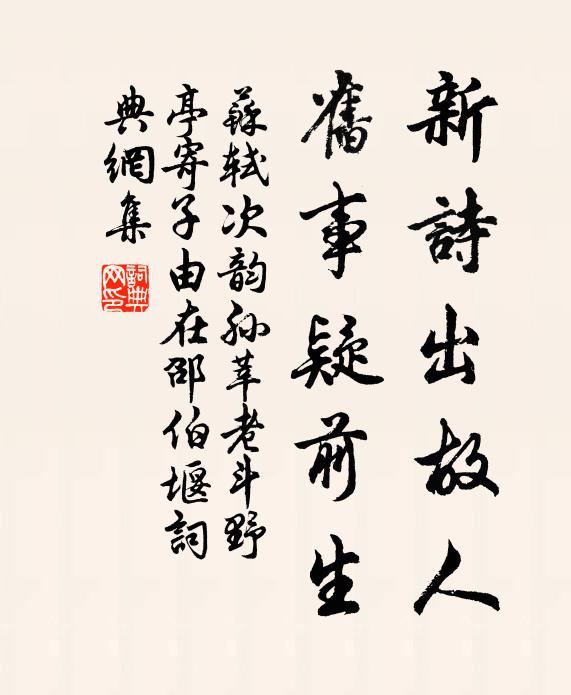 新詩出故人
舊事疑前生
蘇軾次韵孙莘老斗野
亭寄子由在邵伯堰詞
典網集
詞典网印